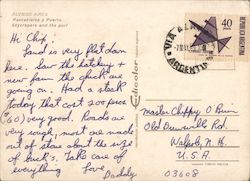 BUENOS AIRES
Rascacielos y Puerto.
Skyscrapers and the port
Hi Chip,
Land is very flat down
here. Saw the hatchery +
new farm the chicks are
going on. Had a steak
today that cost 200 pesos
(60) very good. Roads are
very rough, most are made
out of stone about the size
of bricks. Take care of
everything Love
Daddy
Edicolor
VIA AEREA
ARGENTINA
40
REPUBLICA ARGENTINA
Master Chippy O'Brien
Old Drewsville Rd.
Walpole, N. H.
U. S. A.
03608